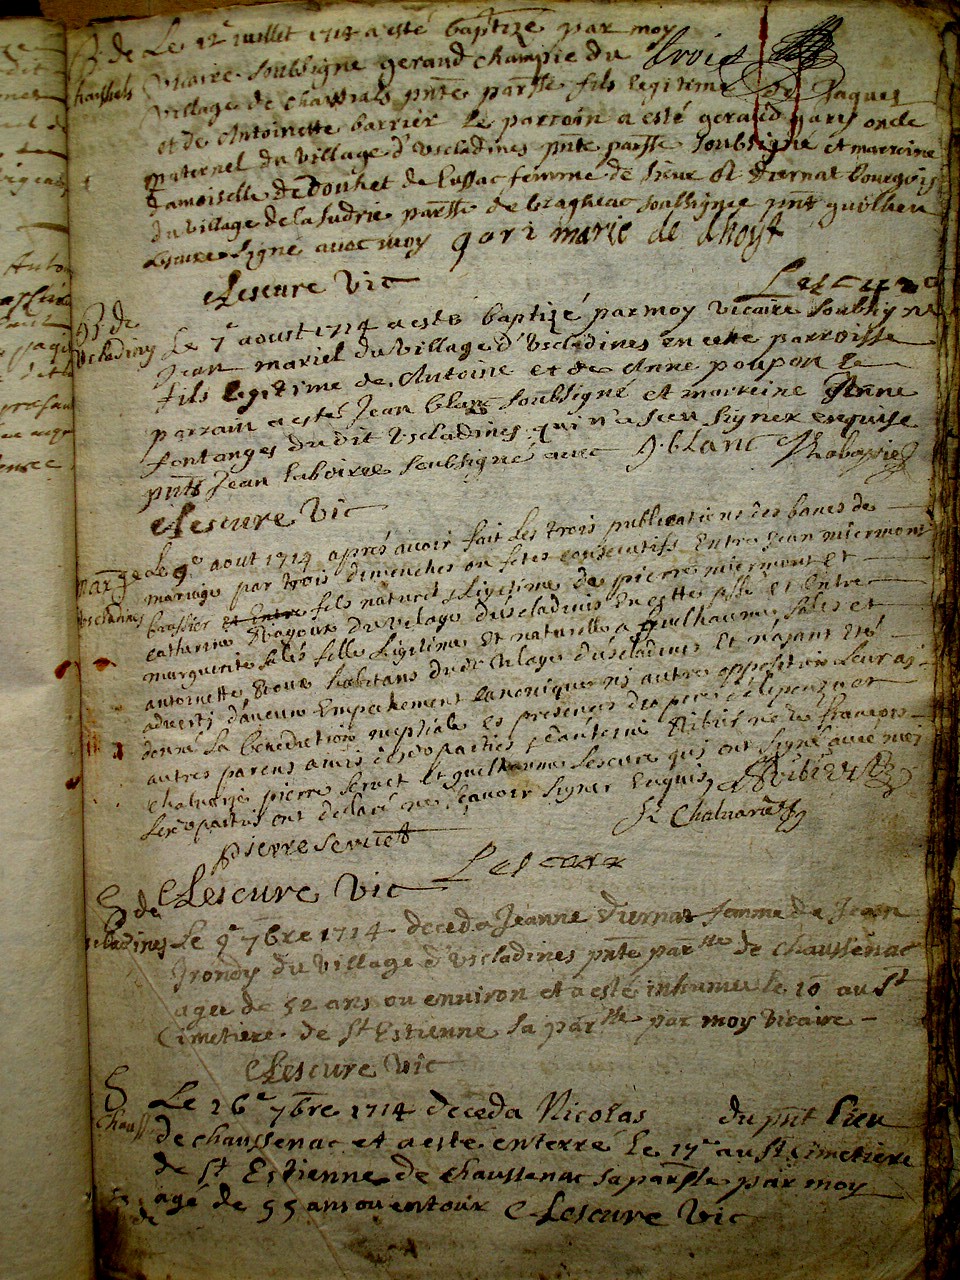 B. de Le 12 juillet 1714 a esté baptizé par moy
chassials vicaire soubsigné geraud champie du trois
village de chassials pnte parsse fils legitime de Jaques
et de Antoinette barrier le parrain a esté geraud gary oncle
paternel du village d'Uscladines pnte parsse soubsigné et marreine
damoiselle de Douhet de Cussac femme de sieur diernat bourgois
du village de la sudrie parsse de bragheac soubsignée pnt guilheu
Lescure signe avec moy gari marie de dhoyt
Lescure Vic Lescure
B. de Le 7e aoust 1714 a esté baptizé par moy vicaire soubsigné
Uscladines Jean mariel du village d'Uscladines en cette parroisse
fils legitime de Antoine et de Anne poupon le
parrain a esté Jean blanc soubsigné et marreine Anne
fontanges du dit Uscladines qui n'a sceu signer enquise
pnts Jean laboirie soubsigné avec J. blanc
Lescure Vic
mariage Le 9e aout 1714 aprés avoir fait les trois publications des bancs de
Uscladines mariage par trois dimenches ou fetes consecutifs Entre Jean miermont
brassier et Entre fils naturel et Ligitime de pierre miermont et
catherine du vilage duscladines En cette psse et Entre
marguerite sales fille Ligitime Et naturelle a guilhaume sales et
antoinette habitans dudt vilage duscladines Et n'ajant Eté
adverti d'aucun Empechement canonique ni autre opposition Leur ai
donné La benediction nuptiale En presence des peres de l'epouz et
autres parens amis des parties d'antoine Ribier me de francois
chalvarie pierre servet et guilhaume Lescure qui ont signé avec moi
Les parties ont declaré ne scavoir signer Enquis Ribier
pierre serviet fr Chalvarie
Lescure
Lescure Vic
S de Le 9e 7bre 1714 deceda Jeanne diernat femme de Jean
Uscladines Trondy du village d'Uscladines pnte parsse de chaussenac
agée de 52 ans ou environ et a esté inhumée le 10 au St
Cimetiere de St Estienne sa parsse par moy vicaire
Lescure Vic
S Le 26e 7bre 1714 deceda Nicolas du pnt lieu
chauss de chaussenac et a esté enterré le 17e au St Cimetiere
de St Estienne de chaussenac sa parsse par moy
agé de 55 ans ou entour Lescure Vic
S
de